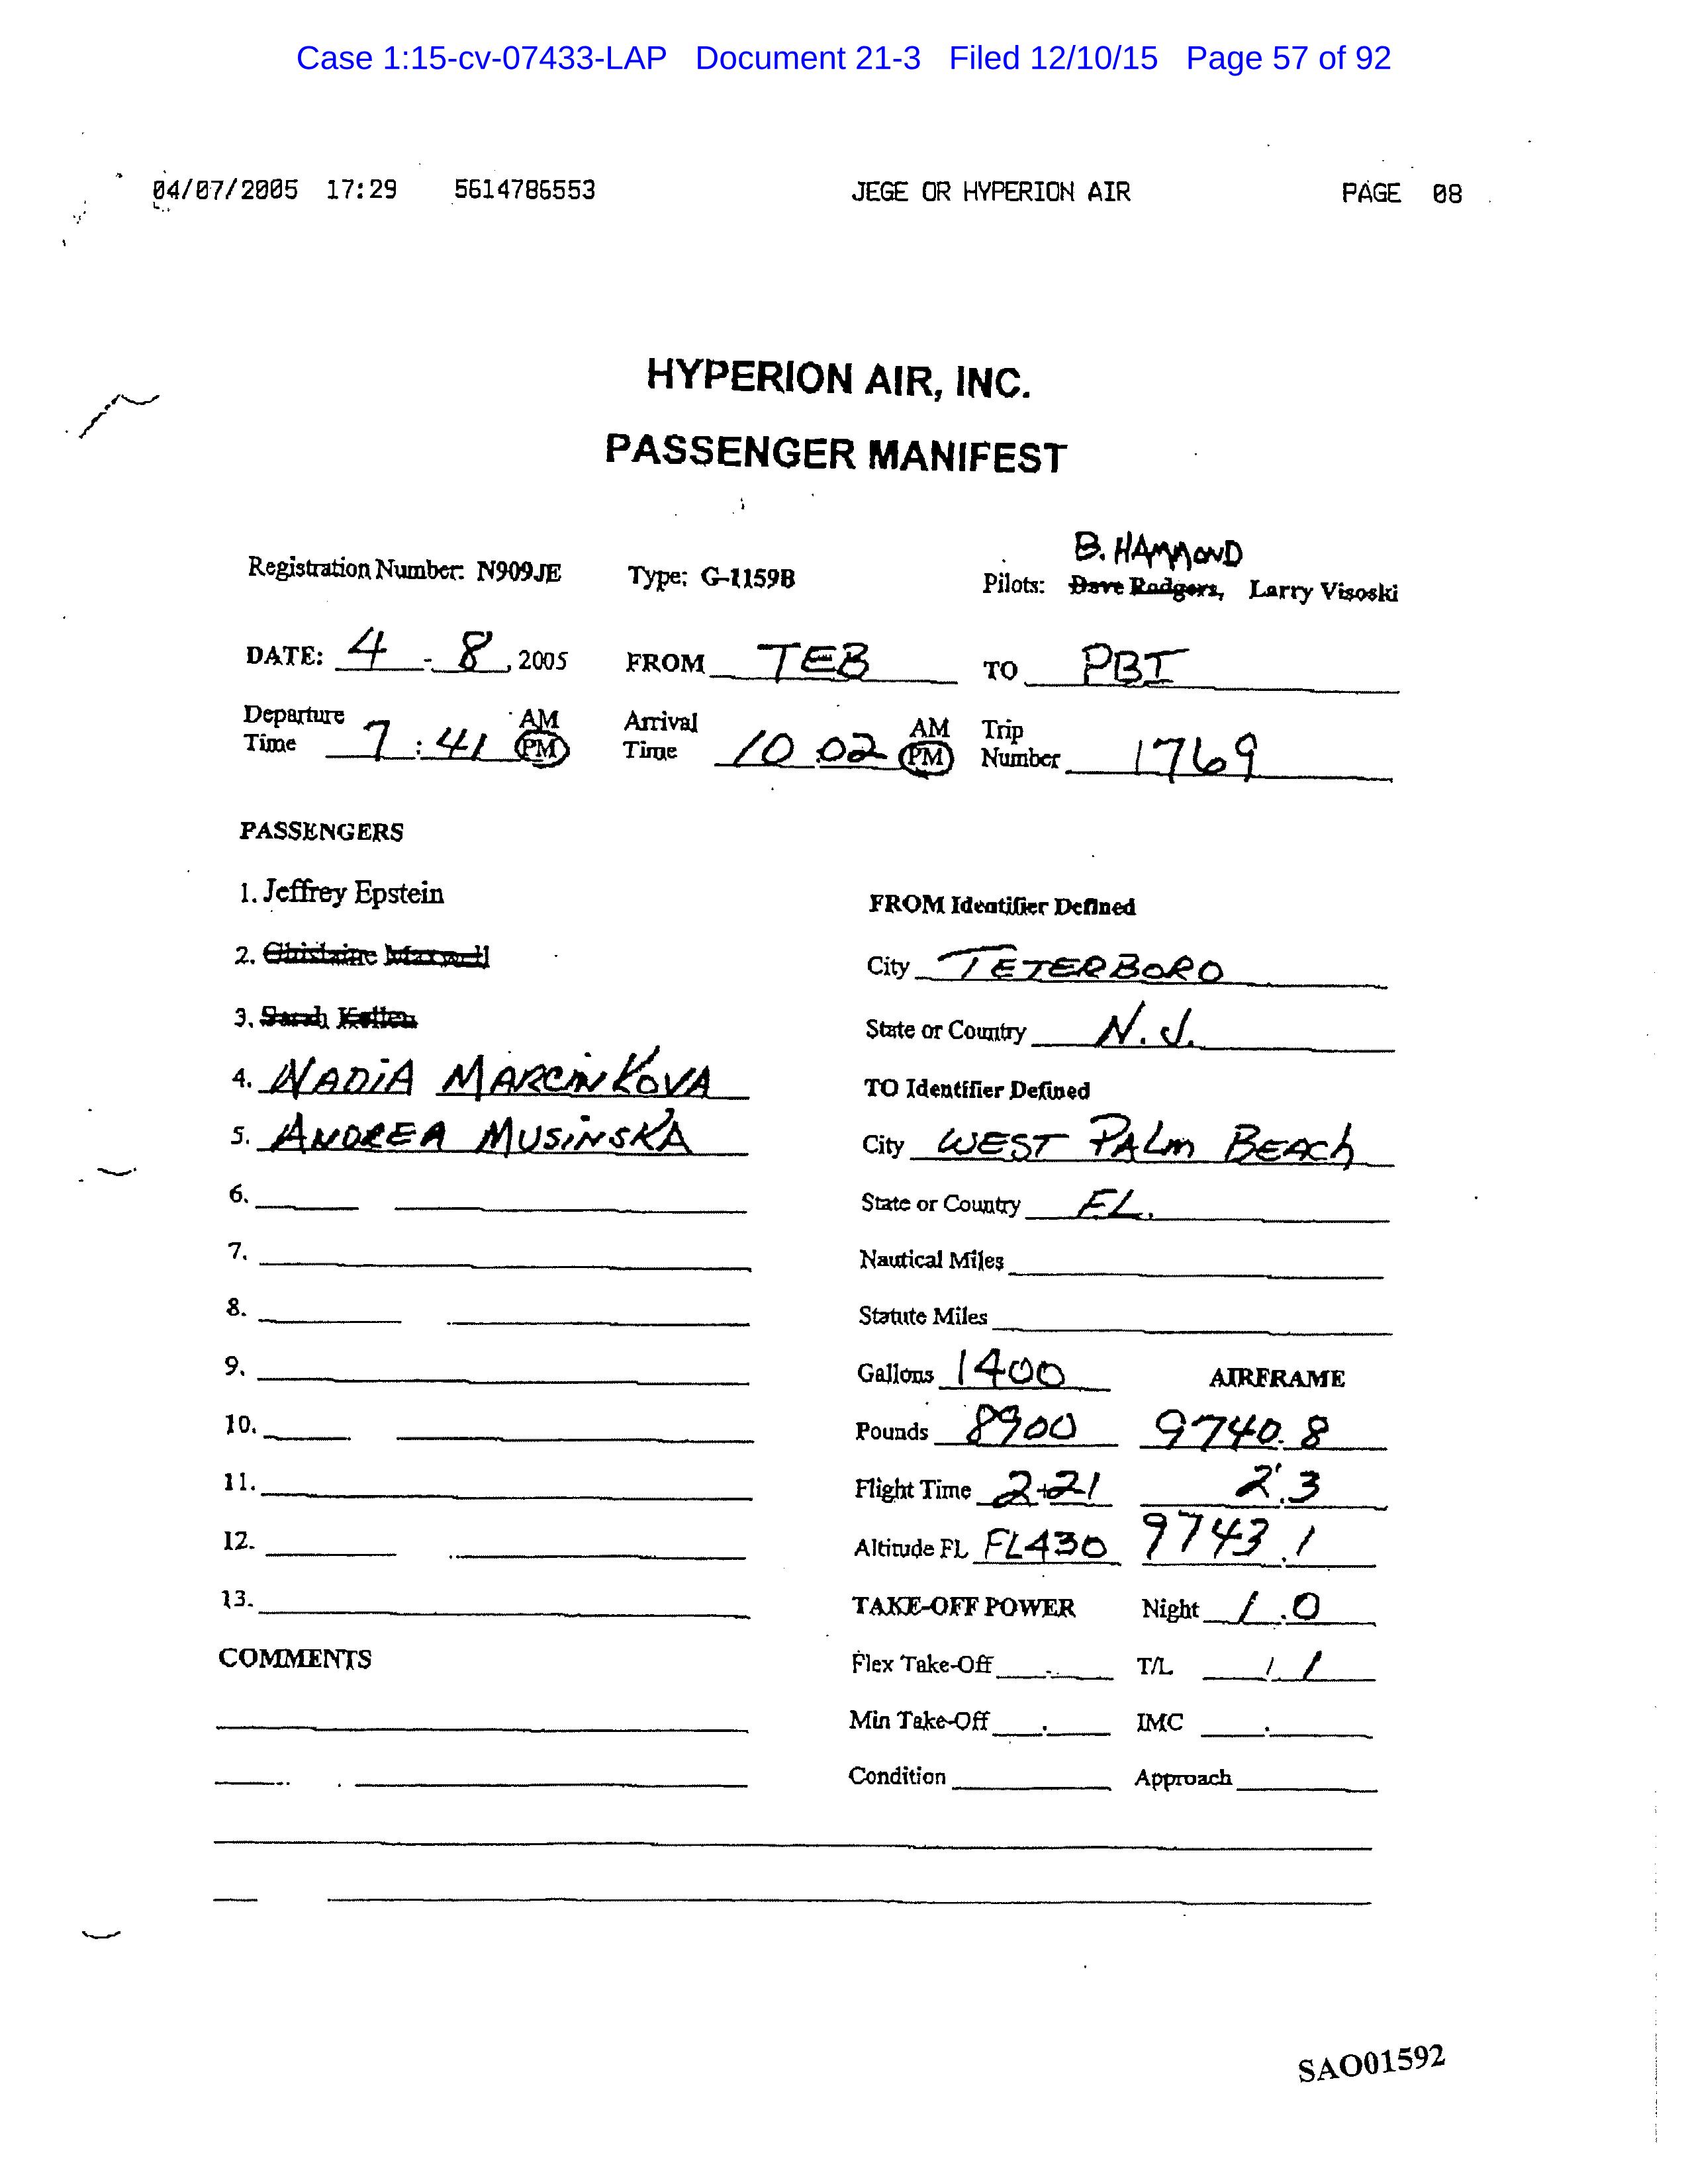 Case 1:15-cv-07433-LAP Document 21-3 Filed 12/10/15 Page 57 of 92
04/07/2005 17:29 5614786553 JEGE OR HYPERION AIR PAGE 08
HYPERION AIR, INC.
PASSENGER MANIFEST
B. HAMMOND
Registration Number: N909JE Type: G-1159B Pilots: Dave Rodgers, Larry Visoski
DATE: 4 - 8, 2005 FROM TEB TO PBI
Departure Time 7:41 AM PM Arrival Time 10:02 AM PM Trip Number 1769
PASSENGERS
1. Jeffrey Epstein
2. Ghislaine Maxwell
3. Sarah Kellen
4. NADIA MARCINKOVA
5. ANDREA MUSINSKA
6.
7.
8.
9.
10.
11.
12.
13.
COMMENTS
FROM Identifier Defined
City TETERBORO
State or Country N.J.
TO Identifier Defined
City WEST PALM BEACH
State or Country FL.
Nautical Miles
Statute Miles
Gallons 1400 AIRFRAME
Pounds 8900 9740.8
Flight Time 2+21 2.3
Altitude FL FL430 9743.1
TAKE-OFF POWER Night 1.0
Flex Take-Off T/L 1/1
Min Take-Off IMC
Condition Approach
SAO01592